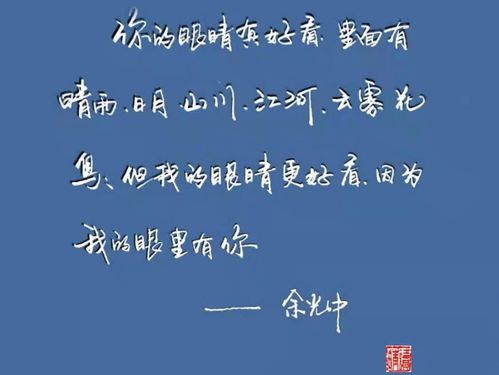 你的眼睛真好看，里面有
晴雨、日月、山川、江河、云雾、花
鸟，但我的眼睛更好看，因为
我的眼里有你
—— 余光中